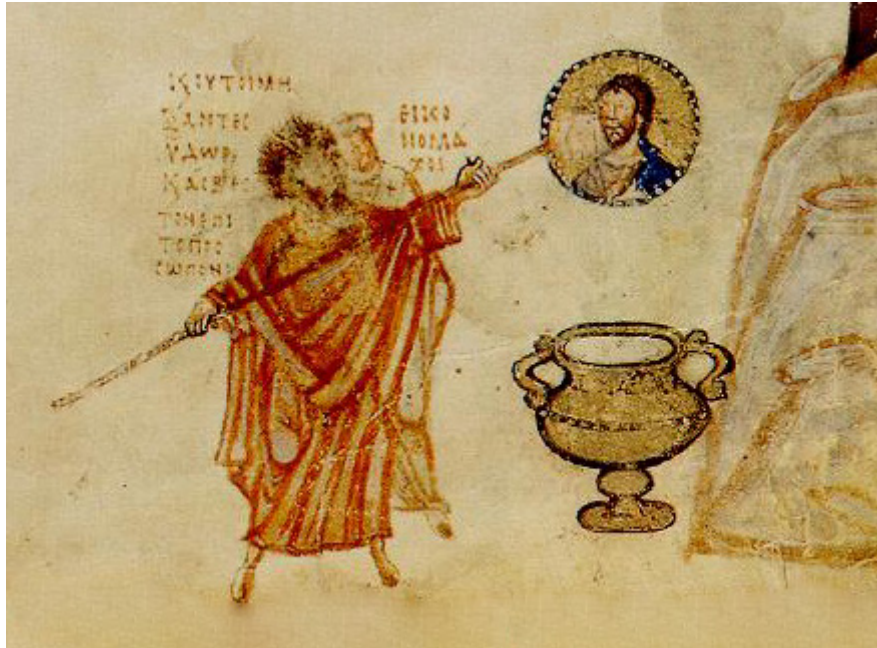 ΚΟΥΤΟΙΜΗ
ΞΑΝΤΕΣ
ΥΔΩΡ
ΚΑΣΒΕΣ
ΤΟΝΕΠΙ
ΤΟΠΡΟ
ΣΩΠΟΝ
ΕΙΚΟ
ΝΟΜΑ
ΧΟΙ